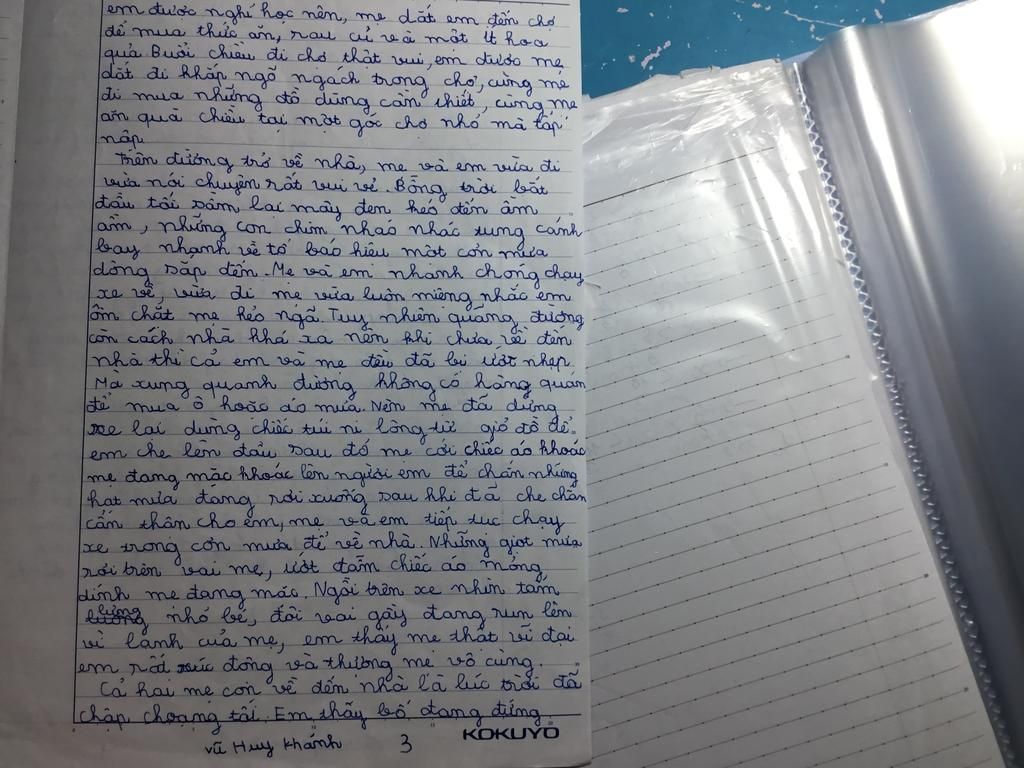 em được nghỉ học nên, mẹ dắt em đến chợ
để mua thức ăn, rau củ và một ít hoa
quả. Buổi chiều đi chợ thật vui, em được mẹ
dắt đi khắp ngõ ngách trong chợ, cùng mẹ
đi mua những đồ dùng cần thiết, cùng mẹ
ăn quà chiều tại một góc chợ nhỏ mà tấp
nập.
Trên đường trở về nhà, mẹ và em vừa đi
vừa nói chuyện rất vui vẻ. Bỗng trời bắt
đầu tối sầm lại mây đen kéo đến ầm
ầm, những con chim nhao nhác rung cánh
bay nhanh về tổ báo hiệu một cơn mưa
dông sắp đến. Mẹ và em nhanh chóng chạy
xe về, vừa đi mẹ vừa luôn miệng nhắc em
ôm chặt mẹ kẻo ngã. Tuy nhiên quãng đường
còn cách nhà khá xa nên khi chưa về đến
nhà thì cả em và mẹ đều đã bị ướt nhẹp.
Mà xung quanh đường không có hàng quán
để mua ô hoặc áo mưa. Nên mẹ đã dừng
xe lại dùng chiếc túi ni lông từ giỏ đồ để
em che lên đầu sau đó mẹ cởi chiếc áo khoác
mẹ đang mặc khoác lên người em để chắn những
hạt mưa đang rơi xuống sau khi đã che chắn
cẩn thận cho em, mẹ và em tiếp tục chạy
xe trong cơn mưa để về nhà. Những giọt mưa
rơi trên vai mẹ, ướt đẫm chiếc áo mỏng
dính mẹ đang mặc. Ngồi trên xe nhìn tấm
lưng nhỏ bé, đôi vai gầy đang run lên
vì lạnh của mẹ, em thấy mẹ thật vĩ đại
em rất xúc động và thương mẹ vô cùng.
Cả hai mẹ con về đến nhà là lúc trời đã
chập choạng tối. Em thấy bố đang đứng
vũ Huy Khánh 3 KOKUYO